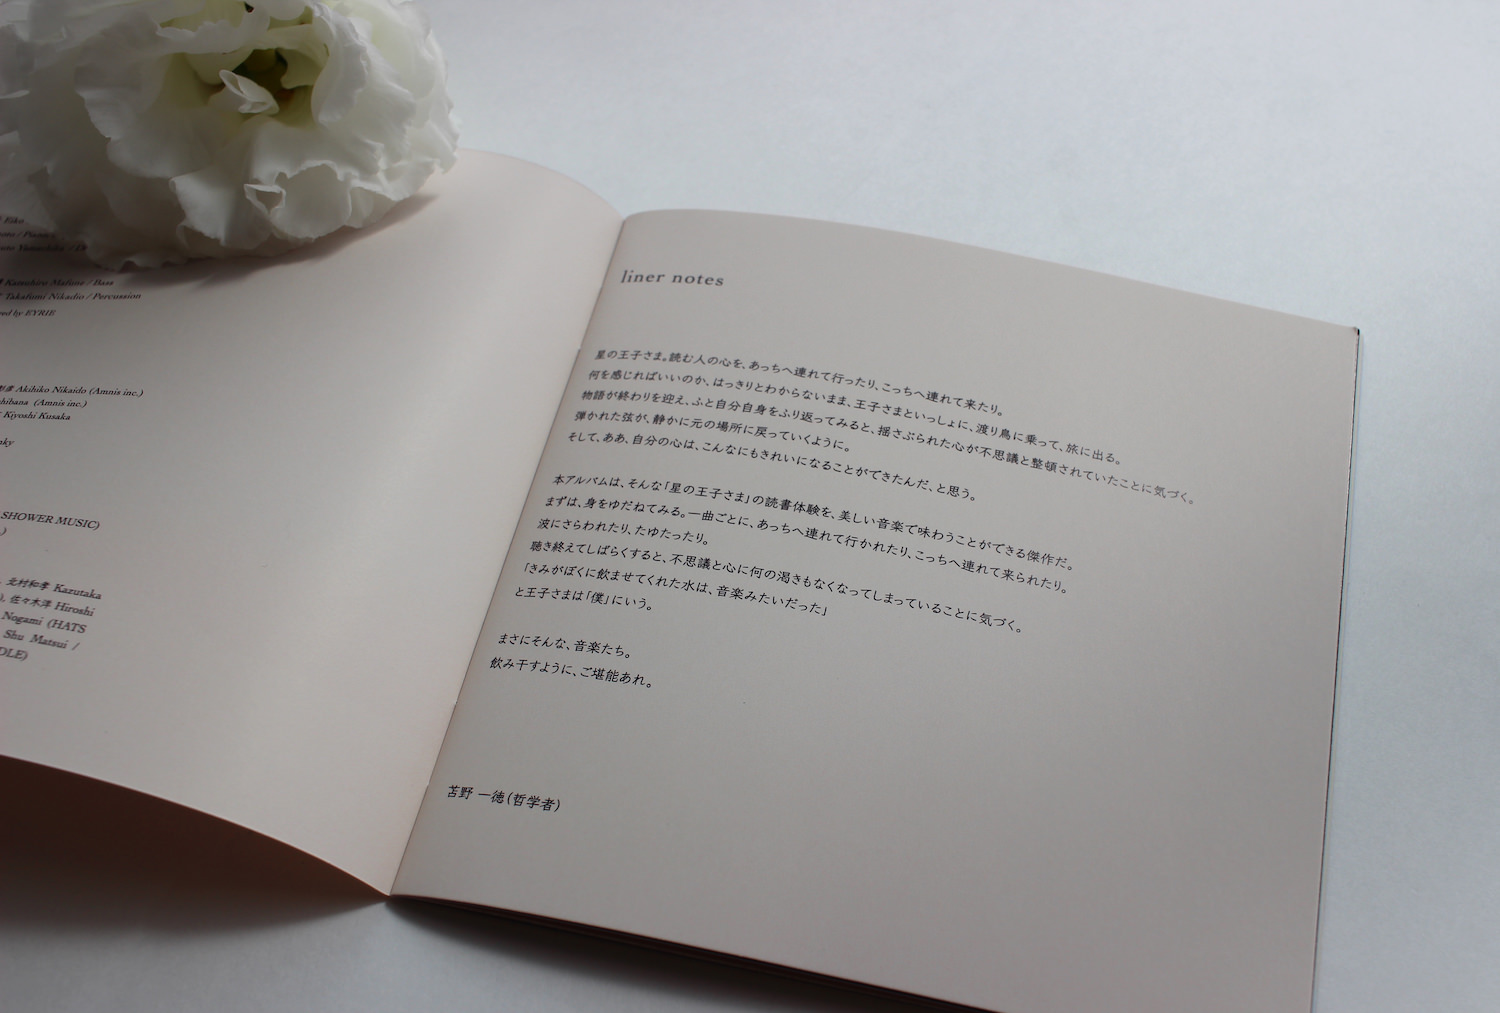 Eiko
Katsuhiro Mafune / Bass
Takafumi Nikaido / Percussion
by EYRIE
Akihiko Nikaido (Amnis inc.)
(Amnis inc.)
Kiyoshi Kusaka
SHOWER MUSIC)
北村和孝 Kazutaka
佐々木洋 Hiroshi
Nogami (HATS
Shu Matsui /
liner notes
星の王子さま。読む人の心を、あっちへ連れて行ったり、こっちへ連れて来たり。
何を感じればいいのか、はっきりとわからないまま、王子さまといっしょに、渡り鳥に乗って、旅に出る。
物語が終わりを迎え、ふと自分自身をふり返ってみると、揺さぶられた心が不思議と整頓されていたことに気づく。
弾かれた弦が、静かに元の場所に戻っていくように。
そして、ああ、自分の心は、こんなにもきれいになることができたんだ、と思う。
本アルバムは、そんな「星の王子さま」の読書体験を、美しい音楽で味わうことができる傑作だ。
まずは、身をゆだねてみる。一曲ごとに、あっちへ連れて行かれたり、こっちへ連れて来られたり。
波にさらわれたり、たゆたったり。
聴き終えてしばらくすると、不思議と心に何の渇きもなくなってしまっていることに気づく。
「きみがぼくに飲ませてくれた水は、音楽みたいだった」
と王子さまは「僕」にいう。
まさにそんな、音楽たち。
飲み干すように、ご堪能あれ。
苫野 一徳（哲学者）